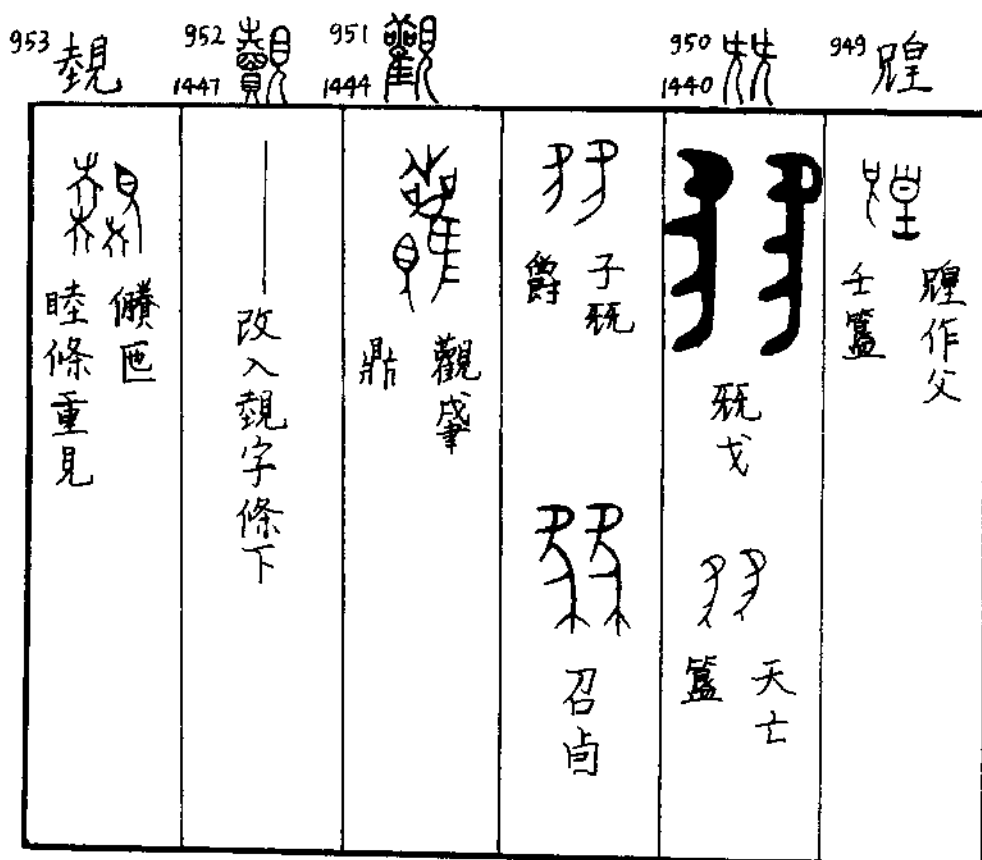 949
作父
壬簋
950
1440 兓
兓戈
天亡
簋
子兓
爵
召卣
951
1444 觀
觀肇
鼎
952
1447 覿
改入字條下
953
儥匜
睦條重見